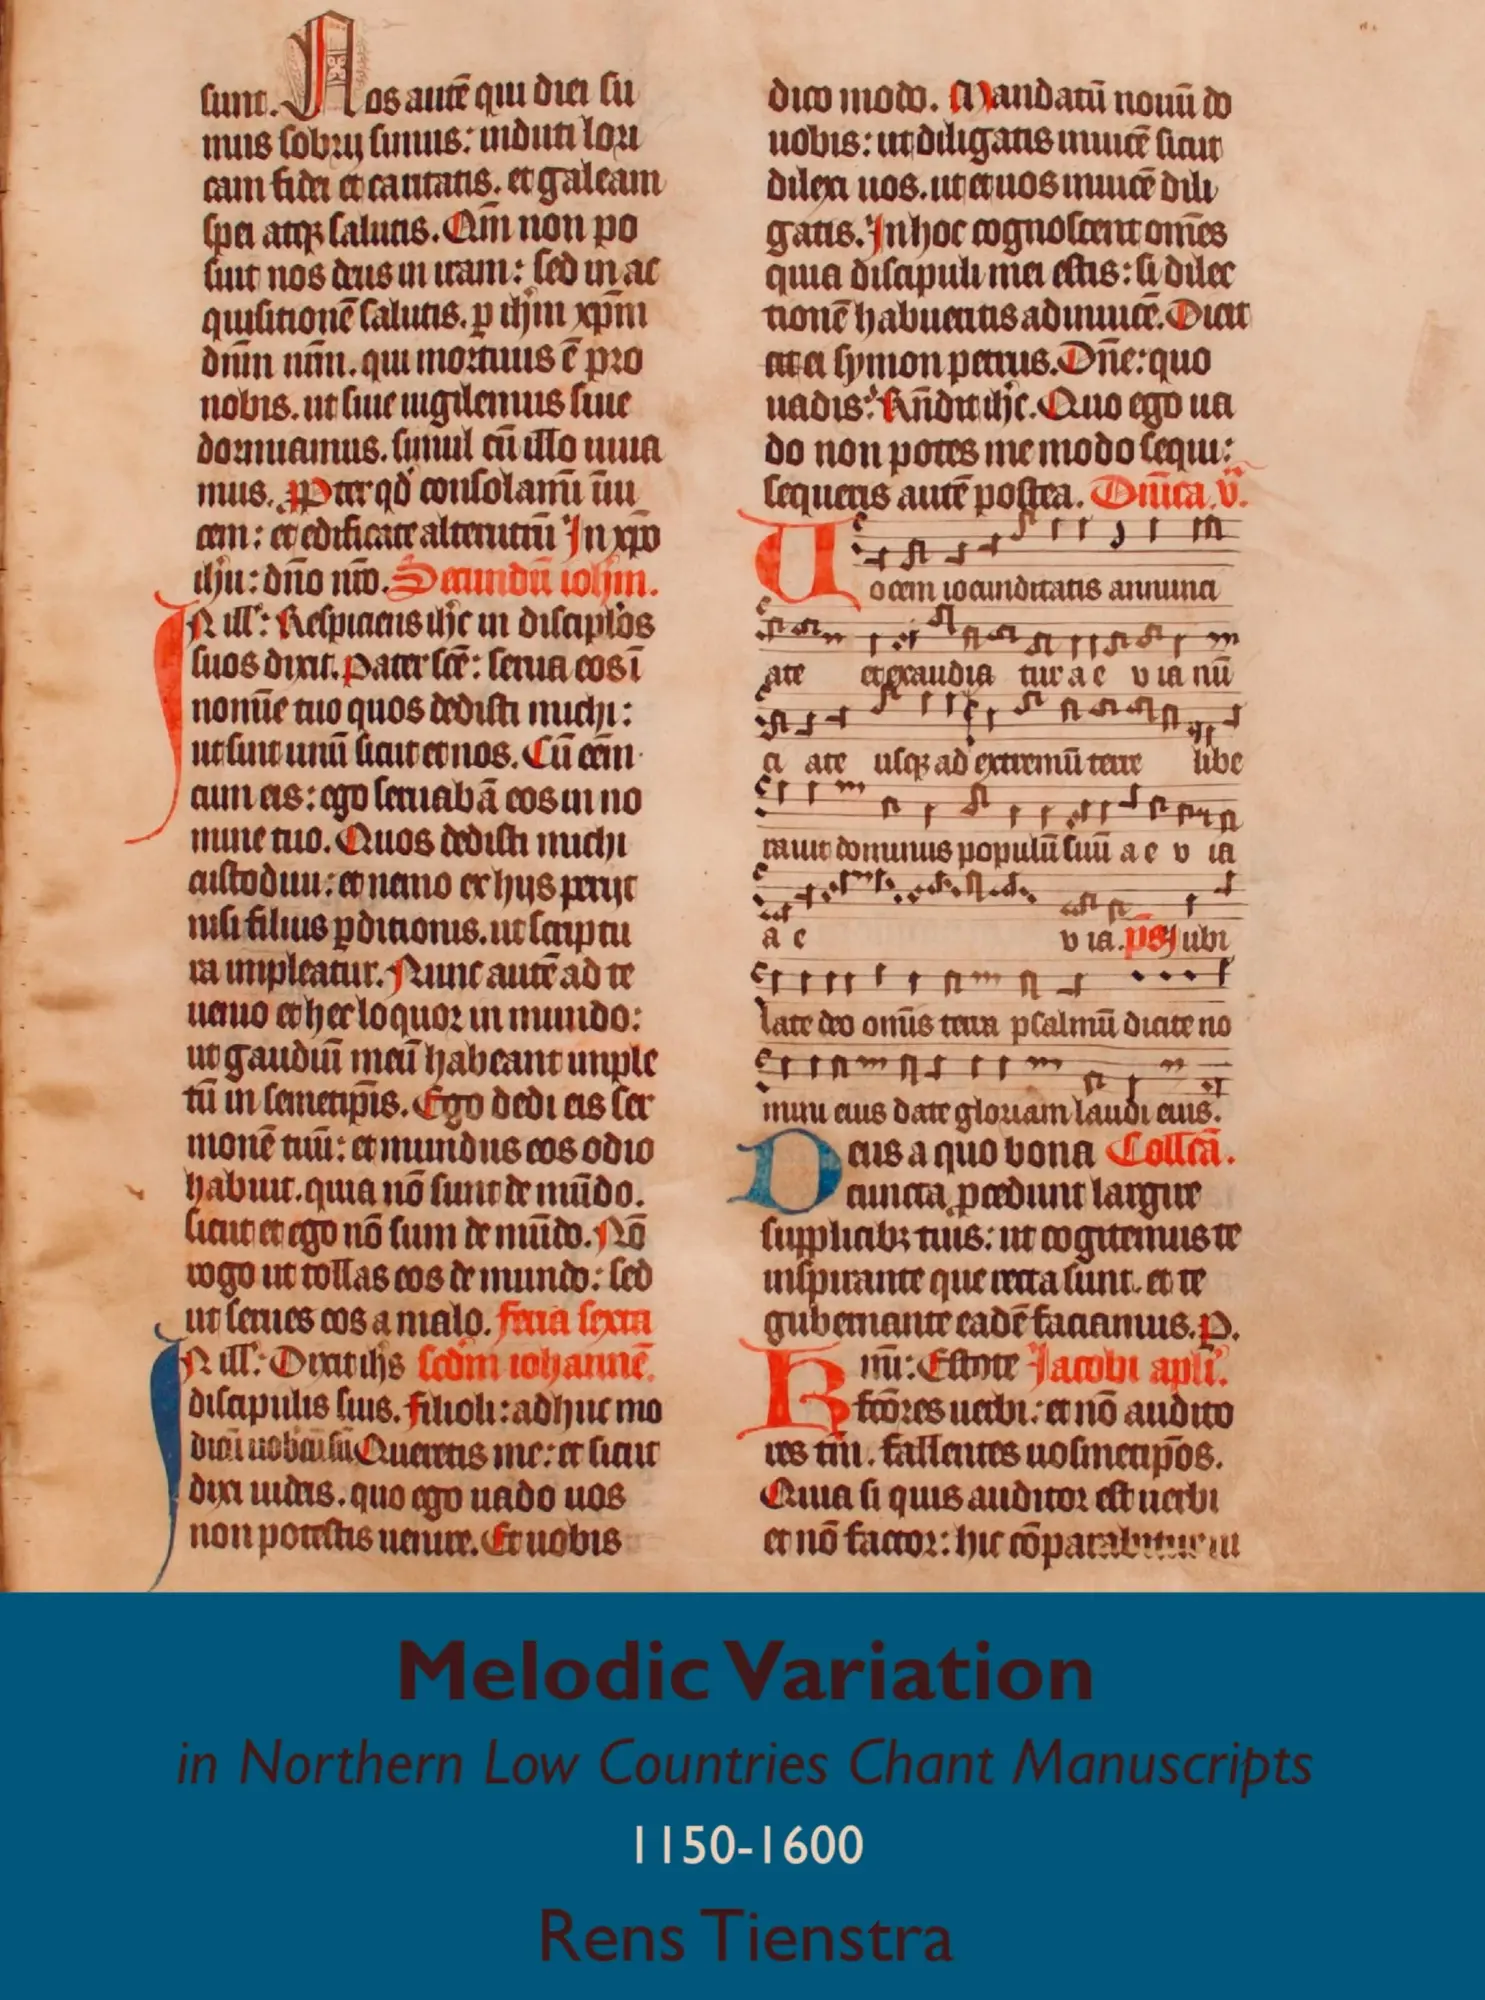 sunt. Nos autē qui diei su
mus sobrij simus: induti lori
cam fidei et caritatis. et galeam
spei atqꝫ salutis. Qm̄ non po
suit nos deus in iram: sed in ac
quisitionē salutis. ꝑ ihm̄ xp̄m
dn̄m nr̄m. qui mortuus ē pro
nobis. ut siue uigilemus siue
dormiamus. simul cū illo uiua
mus. Ppter qd̄ consolamī iui
cem: et edificate alterutrū In xp̄o
ihu: dn̄o nr̄o. Secundū iohm.
N ill': Respiciens ihc in disciplos
suos dixit. Pater scē: serua eos ī
nomīe tuo quos dedisti michi:
ut sint unū sicut et nos. Cū eēm
cum eis: ego seruabā eos in no
mine tuo. Quos dedisti michi
custodiui: et nemo ex hijs perijt
nisi filius ꝑditionis. ut scriptu
ra impleatur. Nunc autē ad te
uenio et hec loquor in mundo:
ut gaudiū meū habeant imple
tū in semetip̄is. Ego dedi eis ser
monē tuū: et mundus eos odio
habuit. quia nō sunt de mūdo.
sicut et ego nō sum de mūdo. Nō
rogo ut tollas eos de mundo: sed
ut serues eos a malo. feria sexta
N ill': Dixit ihs scdm iohannē.
discipulis suis. filioli: adhuc mo
Queretis me: et sicut
dixi iudeis. quo ego uado uos
non potestis uenire. Et uobis
dico modo. Mandatū nouū do
uobis: ut diligatis inuicē sicut
dilexi uos. ut et uos inuicē dili
gatis. In hoc cognoscent om̄es
quia discipuli mei estis: si dilec
tionē habueritis adinuicē. Dicit
ei symon petrus. Dn̄e: quo
uadis? Rn̄dit ihc. Quo ego ua
do non potes me modo sequi:
sequeris autē postea. Dnīca. v.
Uocem iocunditatis annunci
ate et exaudia tur a e v ia nū
ci ate usqꝫ ad extremū terre libe
rauit dominus populū suū a e v ia
a e v ia. ps Iubi
late deo omīs terra psalmū dicite no
mini eius date gloriam laudi eius.
Deus a quo bona Collcā.
cuncta ꝓcedunt largire
supplicibꝫ tuis: ut cogitemus te
inspirante que recta sunt. et te
gubernante eadē faciamus. P.
Rmi: Estote Iacobi apli.
fcōres uerbi: et nō audito
res tm̄. fallentes uosmetip̄os.
Quia si quis auditor est uerbi
et nō factor: hic cōparabitur ui
Melodic Variation
in Northern Low Countries Chant Manuscripts
1150-1600
Rens Tienstra